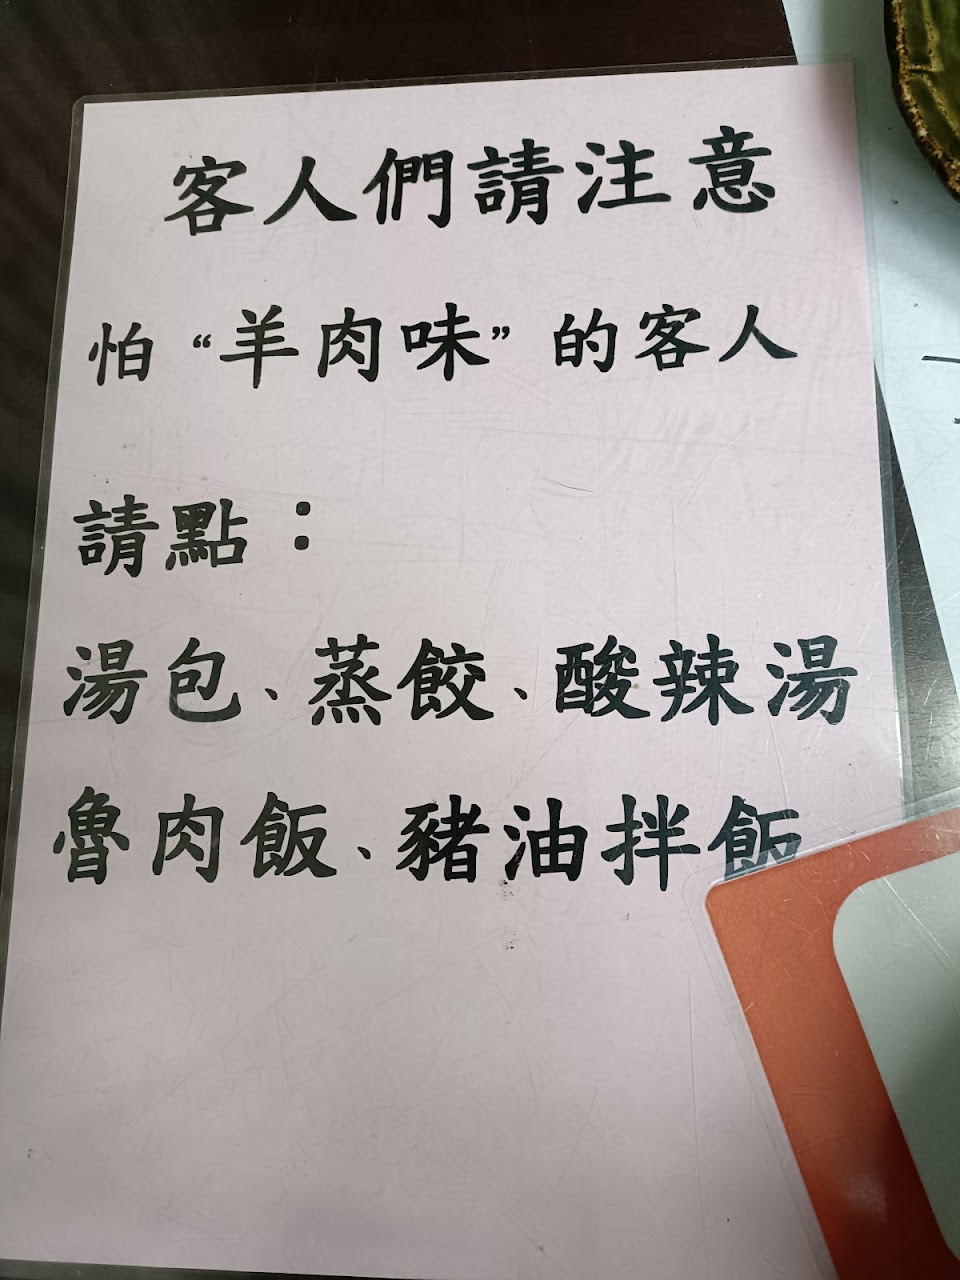 客人們請注意
怕“羊肉味”的客人
請點：
湯包、蒸餃、酸辣湯
魯肉飯、豬油拌飯